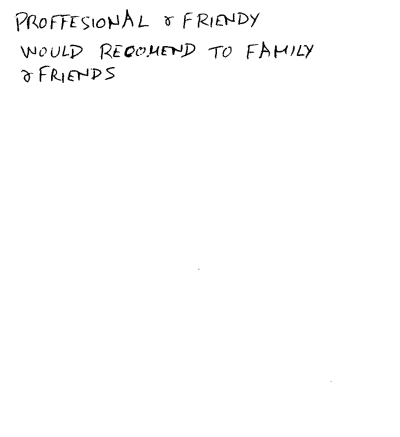 PROFFESIONAL & FRIENDY
WOULD RECOMEND TO FAMILY
& FRIENDS